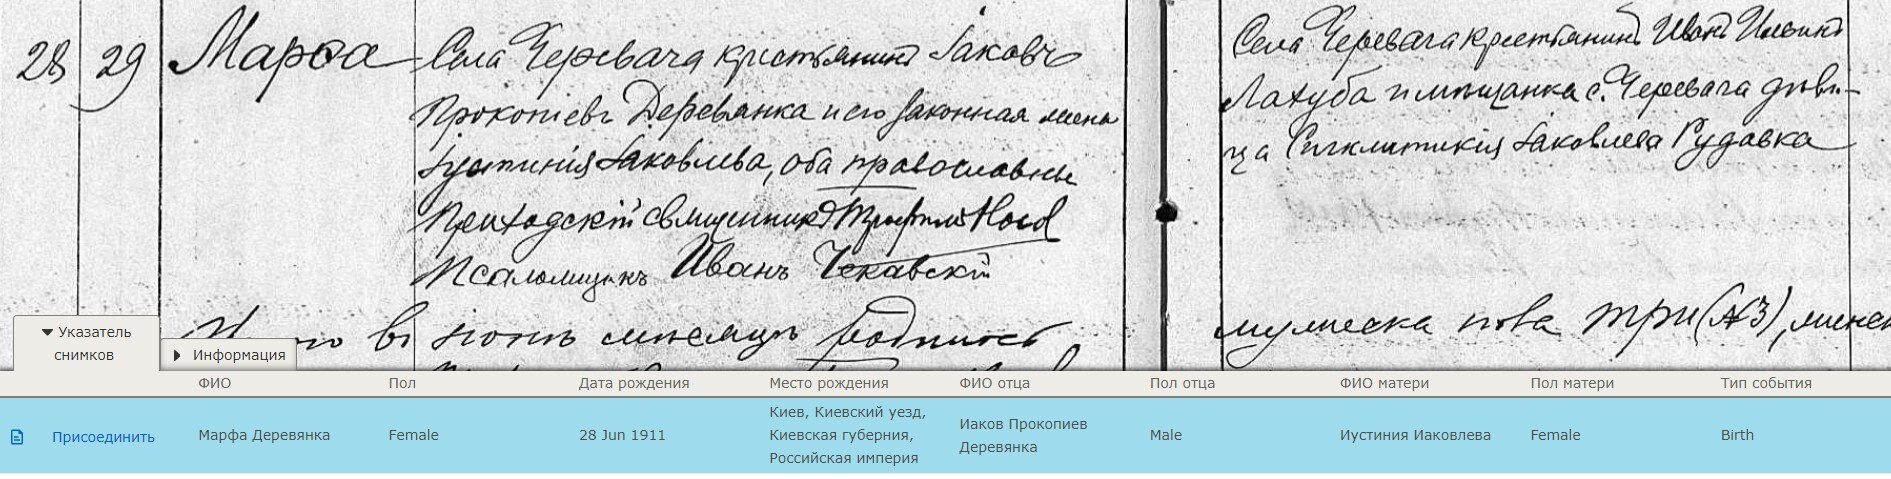 28 29 Марѳа Села Черевача крестьянинъ Іаковъ
Прокопіевъ Деревянка и его законная жена
Іустинія Іаковлева, оба православные
Приходскій священникъ
Псаломщикъ Иванъ Чекавскій
Села Черевача крестьянинъ Иванъ
Лахуба и мѣщанка с. Черевача дѣви-
ца Сигклитикія Іаковлева Рудавка
въ іюнѣ мѣсяцѣ родилось
мужеска пола три (№3), женск
Указатель
снимков
Информация
ФИО Пол Дата рождения Место рождения ФИО отца Пол отца ФИО матери Пол матери Тип события
Присоединить Марфа Деревянка Female 28 Jun 1911 Киев, Киевский уезд,
Киевская губерния,
Российская империя
Иаков Прокопиев
Деревянка
Male Иустиния Иаковлева Female Birth